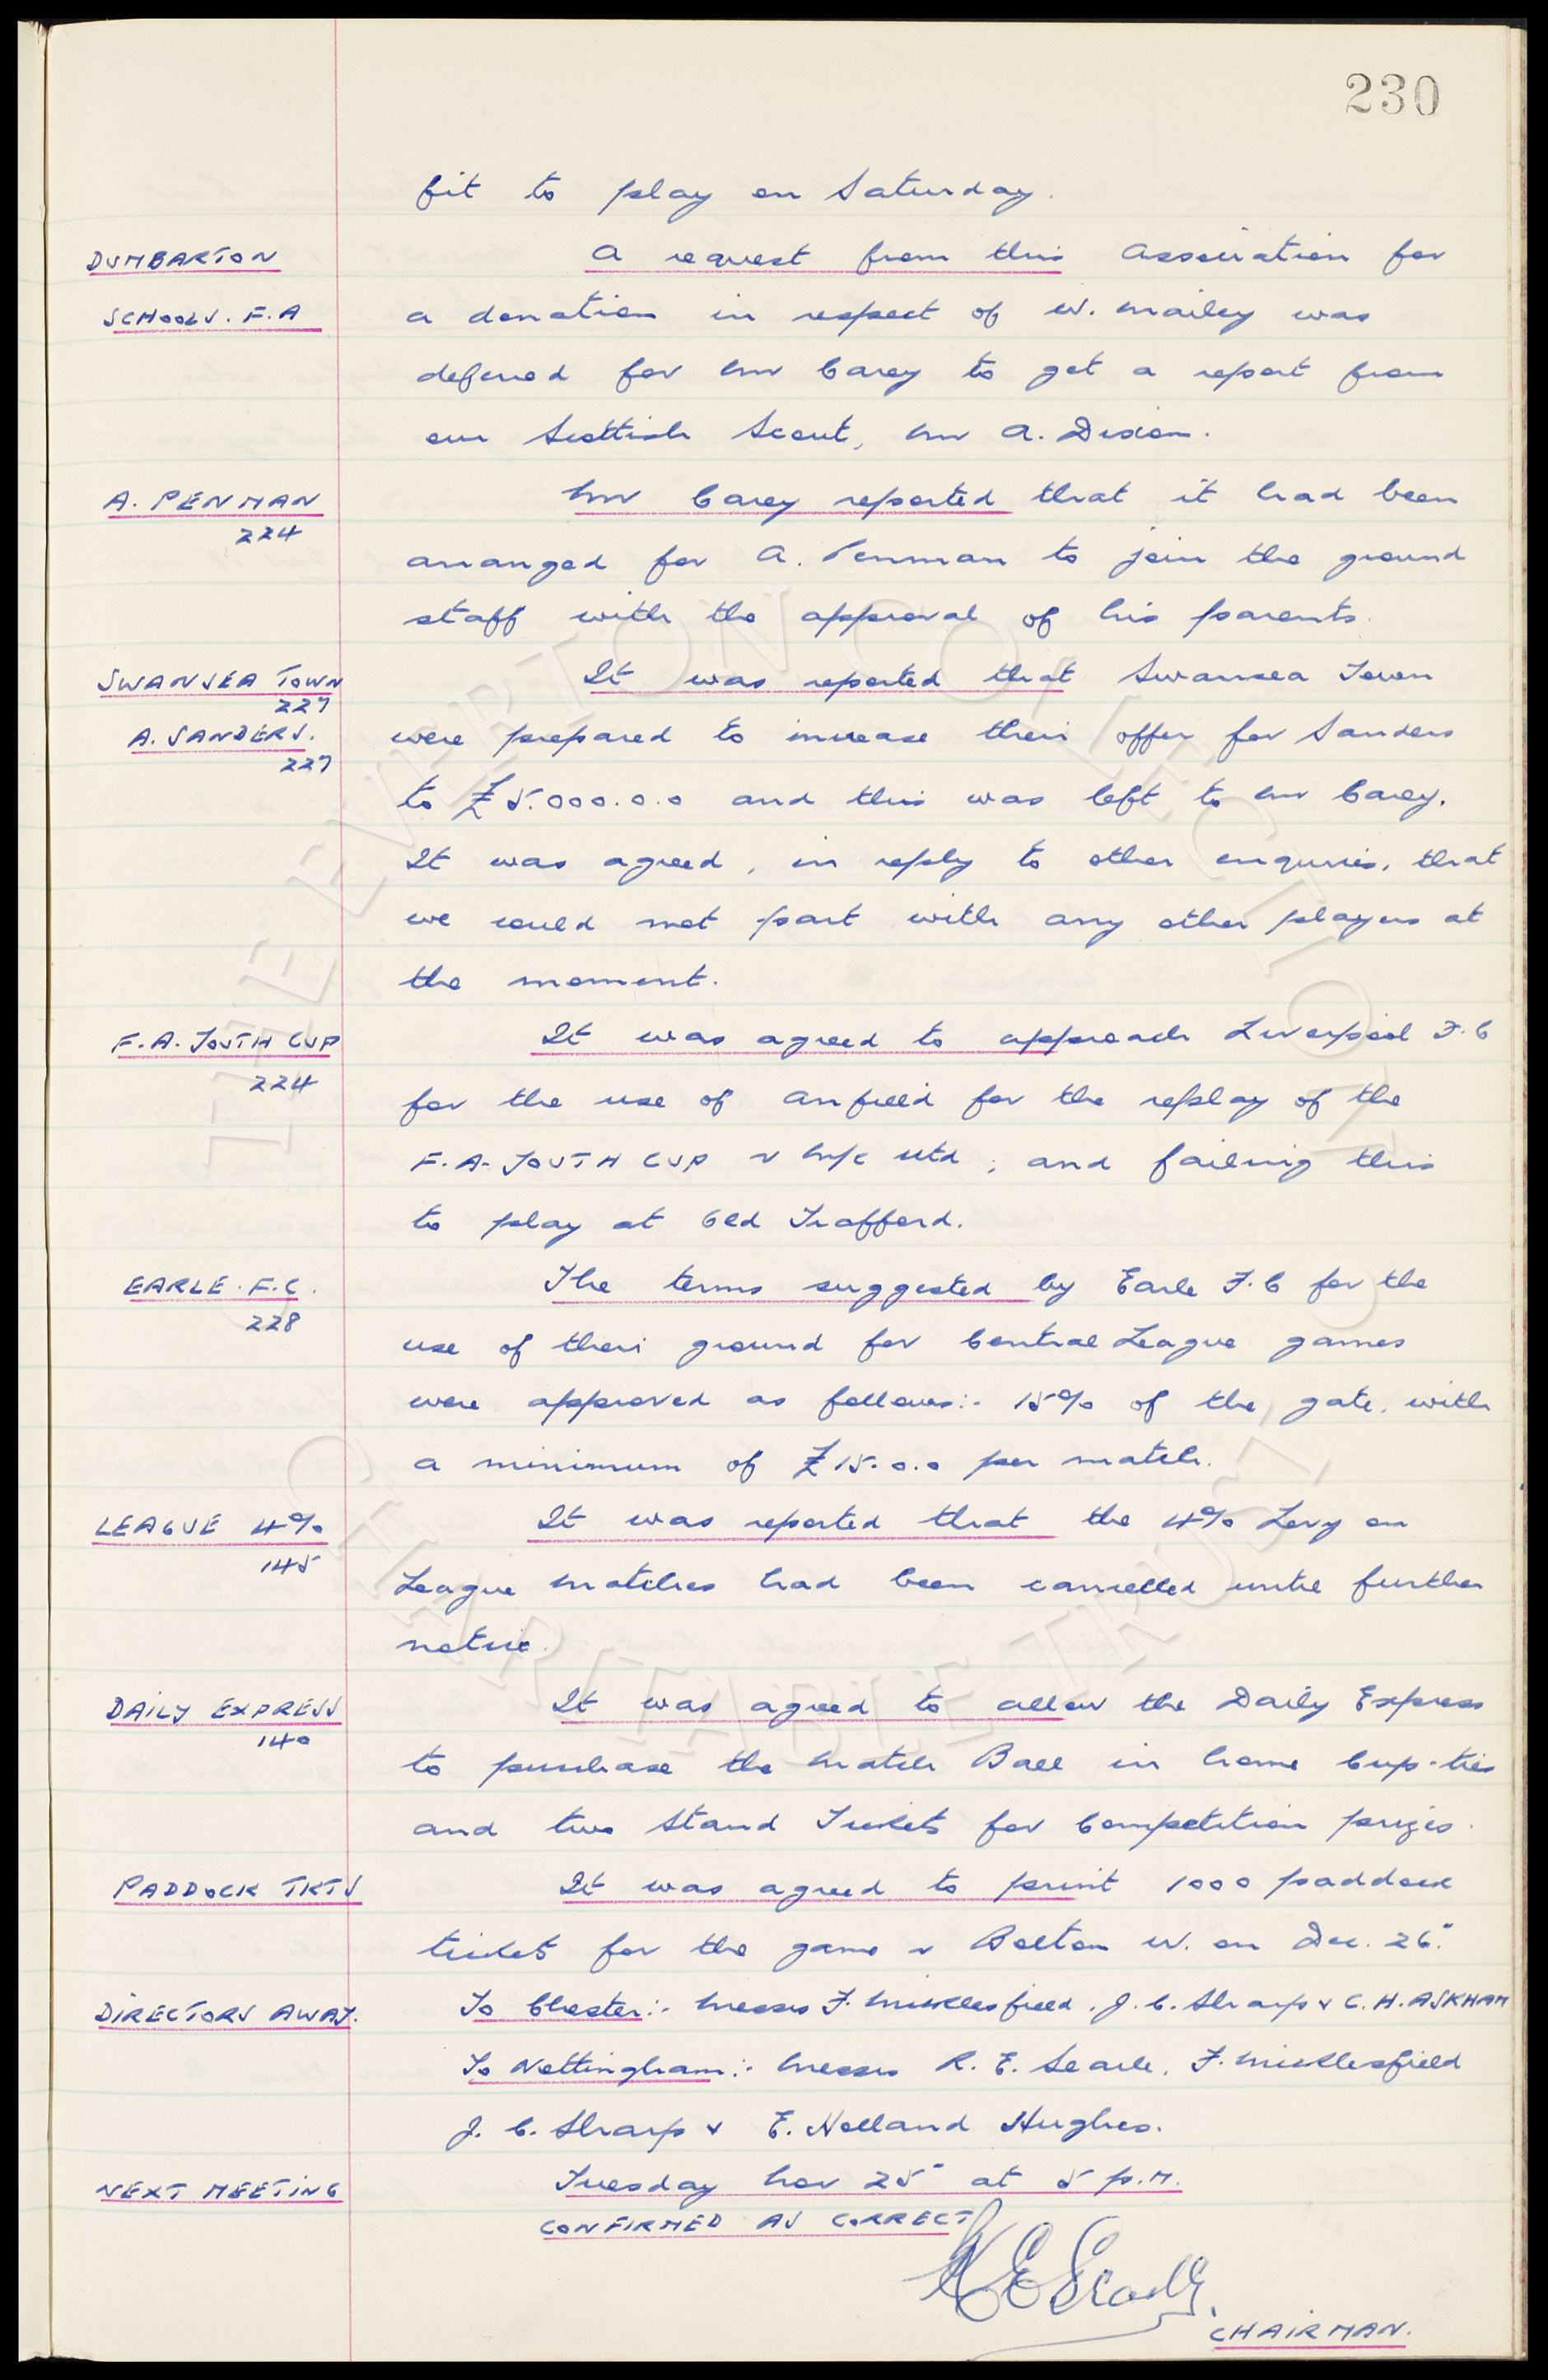 230
fit to play on Saturday.
DUMBARTON
SCHOOLS. F.A
A request from this Association for
a donation in respect of W. Mailey was
deferred for Mr Carey to get a report from
our Scottish Scout, Mr A. Dixon.
A. PENMAN
224
Mr Carey reported that it had been
arranged for A. Penman to join the ground
staff with the approval of his parents.
SWANSEA TOWN
227
A. SANDERS.
227
It was reported that Swansea Town
were prepared to increase their offer for Sanders
to £5.000.0.0 and this was left to Mr Carey.
It was agreed, in reply to other enquiries, that
we could not part with any other players at
the moment.
F.A. YOUTH CUP
224
It was agreed to approach Liverpool F.C
for the use of Anfield for the replay of the
F.A. YOUTH CUP v M/c Utd, and failing this
to play at Old Trafford.
EARLE. F.C.
228
The terms suggested by Earle F.C for the
use of their ground for Central League games
were approved as follows:- 15% of the gate, with
a minimum of £15.0.0 per match.
LEAGUE 4%
145
It was reported that the 4% Levy on
League Matches had been cancelled until further
notice.
DAILY EXPRESS
140
It was agreed to allow the Daily Express
to purchase the Match Ball in home Cup-ties
and two Stand Tickets for Competition prizes.
PADDOCK TKTS
It was agreed to print 1000 paddock
tickets for the game v Bolton W. on Dec. 26".
DIRECTORS AWAY.
To Chester:- Messrs F. Micklesfield, J.C. Sharp & C.H. ASKHAM
To Nottingham:- Messrs R.E. Searle, F. Micklesfield
J.C. Sharp & E. Holland Hughes.
NEXT MEETING
Tuesday Nov 25" at 5 p.m.
CONFIRMED AS CORRECT
CHAIRMAN.
THE EVERTON COLLECTION
CHARITABLE TRUST